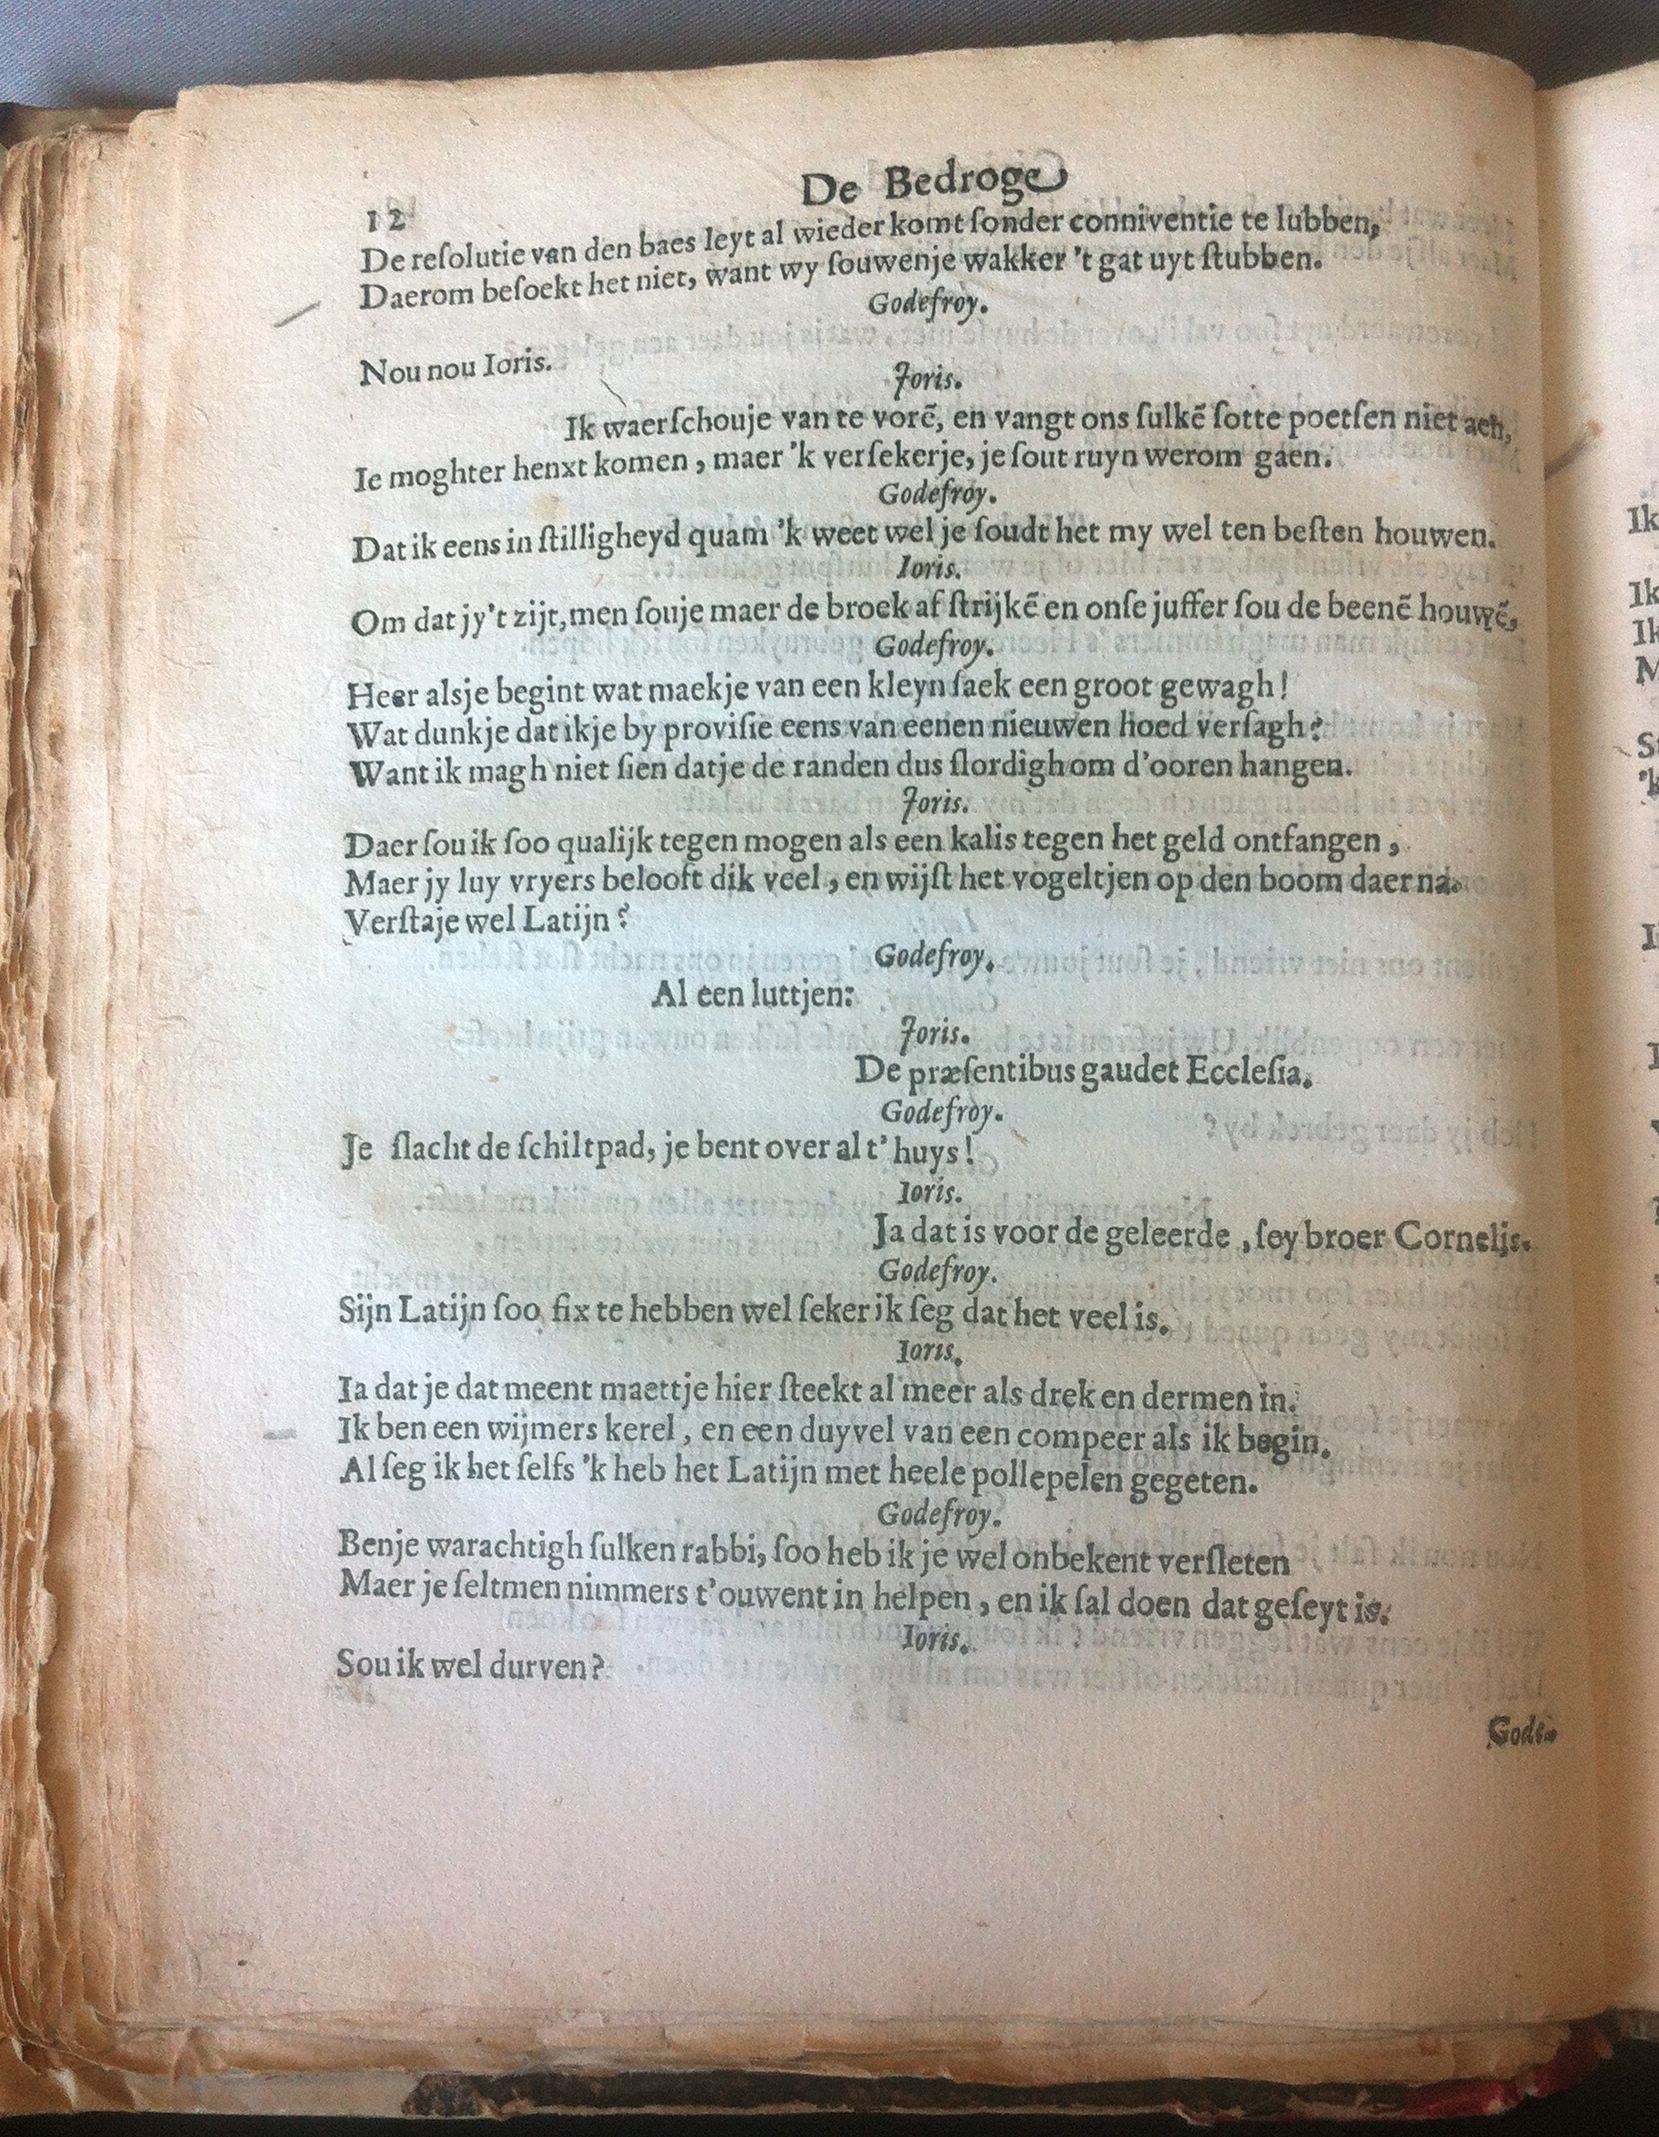 De Bedroge
12
De reſolutie van den baes leyt al wieder komt ſonder conniventie te lubben,
Daerom beſoekt het niet, want wy ſouwenje wakker 't gat uyt ſtubben.
Godefroy.
Nou nou Ioris.
Joris.
Ik waerſchouje van te vorē, en vangt ons ſulkē ſotte poetſen niet aen,
Ie moghter henxt komen, maer 'k verſekerje, je ſout ruyn werom gaen.
Godefroy.
Dat ik eens in ſtilligheyd quam 'k weet wel je ſoudt het my wel ten beſten houwen.
Ioris.
Om dat jy't zijt, men ſouje maer de broek af ſtrijkē en onſe juffer ſou de beenē houwē,
Godefroy.
Heer alsje begint wat maekje van een kleyn ſaek een groot gewagh!
Wat dunkje dat ikje by proviſie eens van eenen nieuwen hoed verſagh?
Want ik magh niet ſien datje de randen dus ſlordigh om d'ooren hangen.
Joris.
Daer ſou ik ſoo qualijk tegen mogen als een kalis tegen het geld ontfangen,
Maer jy luy vryers belooft dik veel, en wijſt het vogeltjen op den boom daer na.
Verſtaje wel Latijn?
Godefroy.
Al een luttjen:
Joris.
De præſentibus gaudet Eccleſia.
Godefroy.
Je ſlacht de ſchiltpad, je bent over al t' huys!
Ioris.
Ja dat is voor de geleerde, ſey broer Cornelis.
Godefroy.
Sijn Latijn ſoo fix te hebben wel ſeker ik ſeg dat het veel is.
Ioris.
Ia dat je dat meent maettje hier ſteekt al meer als drek en dermen in.
Ik ben een wijmers kerel, en een duyvel van een compeer als ik begin.
Al ſeg ik het ſelfs 'k heb het Latijn met heele pollepelen gegeten.
Godefroy.
Benje warachtigh ſulken rabbi, ſoo heb ik je wel onbekent verſleten
Maer je ſeltmen nimmers t'ouwent in helpen, en ik ſal doen dat geſeyt is.
Ioris.
Sou ik wel durven?
Gode-
Ik
Ik
Ik